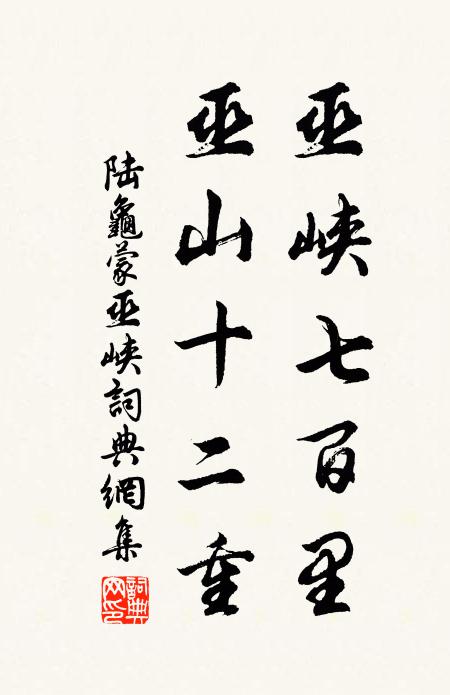 巫峡七百里
巫山十二重
陆龜蒙巫峡詞典網集
詞典网印